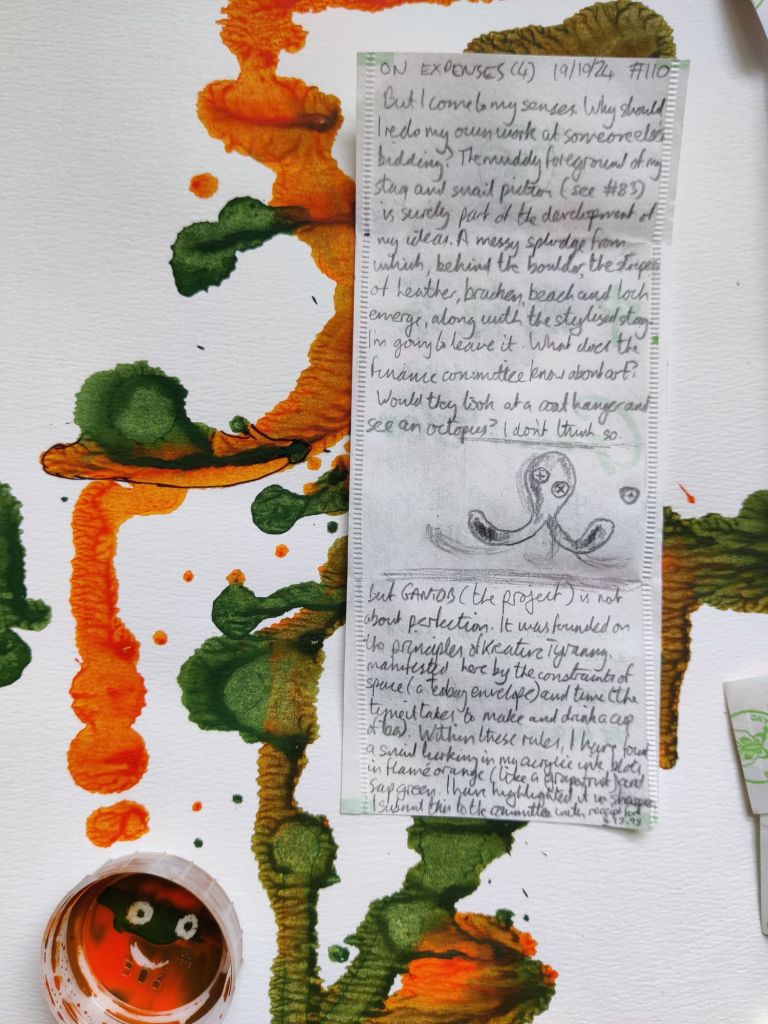 ON EXPENSES (4) 19/10/24 #110
But I come to my senses. Why should
I redo my own work at someone else's
bidding? The muddy foreground of my
stag and snail picture (see #83)
is surely part of the development of
my ideas. A messy splodge from
which, behind the boulder, the stripes
of heather, bracken, beach and loch
emerge, along with the stylised stag.
I'm going to leave it. What does the
finance committee know about art?
Would they look at a coat hanger and
see an octopus? I don't think so
But GANTOB (the project) is not
about perfection. It was founded on
the principles of Kreative Tyranny,
manifested here by the constraints of
space (a teabag envelope) and time (the
time it takes to make and drink a cup
of tea). Within these rules, I have found
a snail lurking in my acrylic ink blots
in flame orange (like a grapefruit) and
sap green. I have highlighted it in sharpie.
I submit this to the committee with receipt for